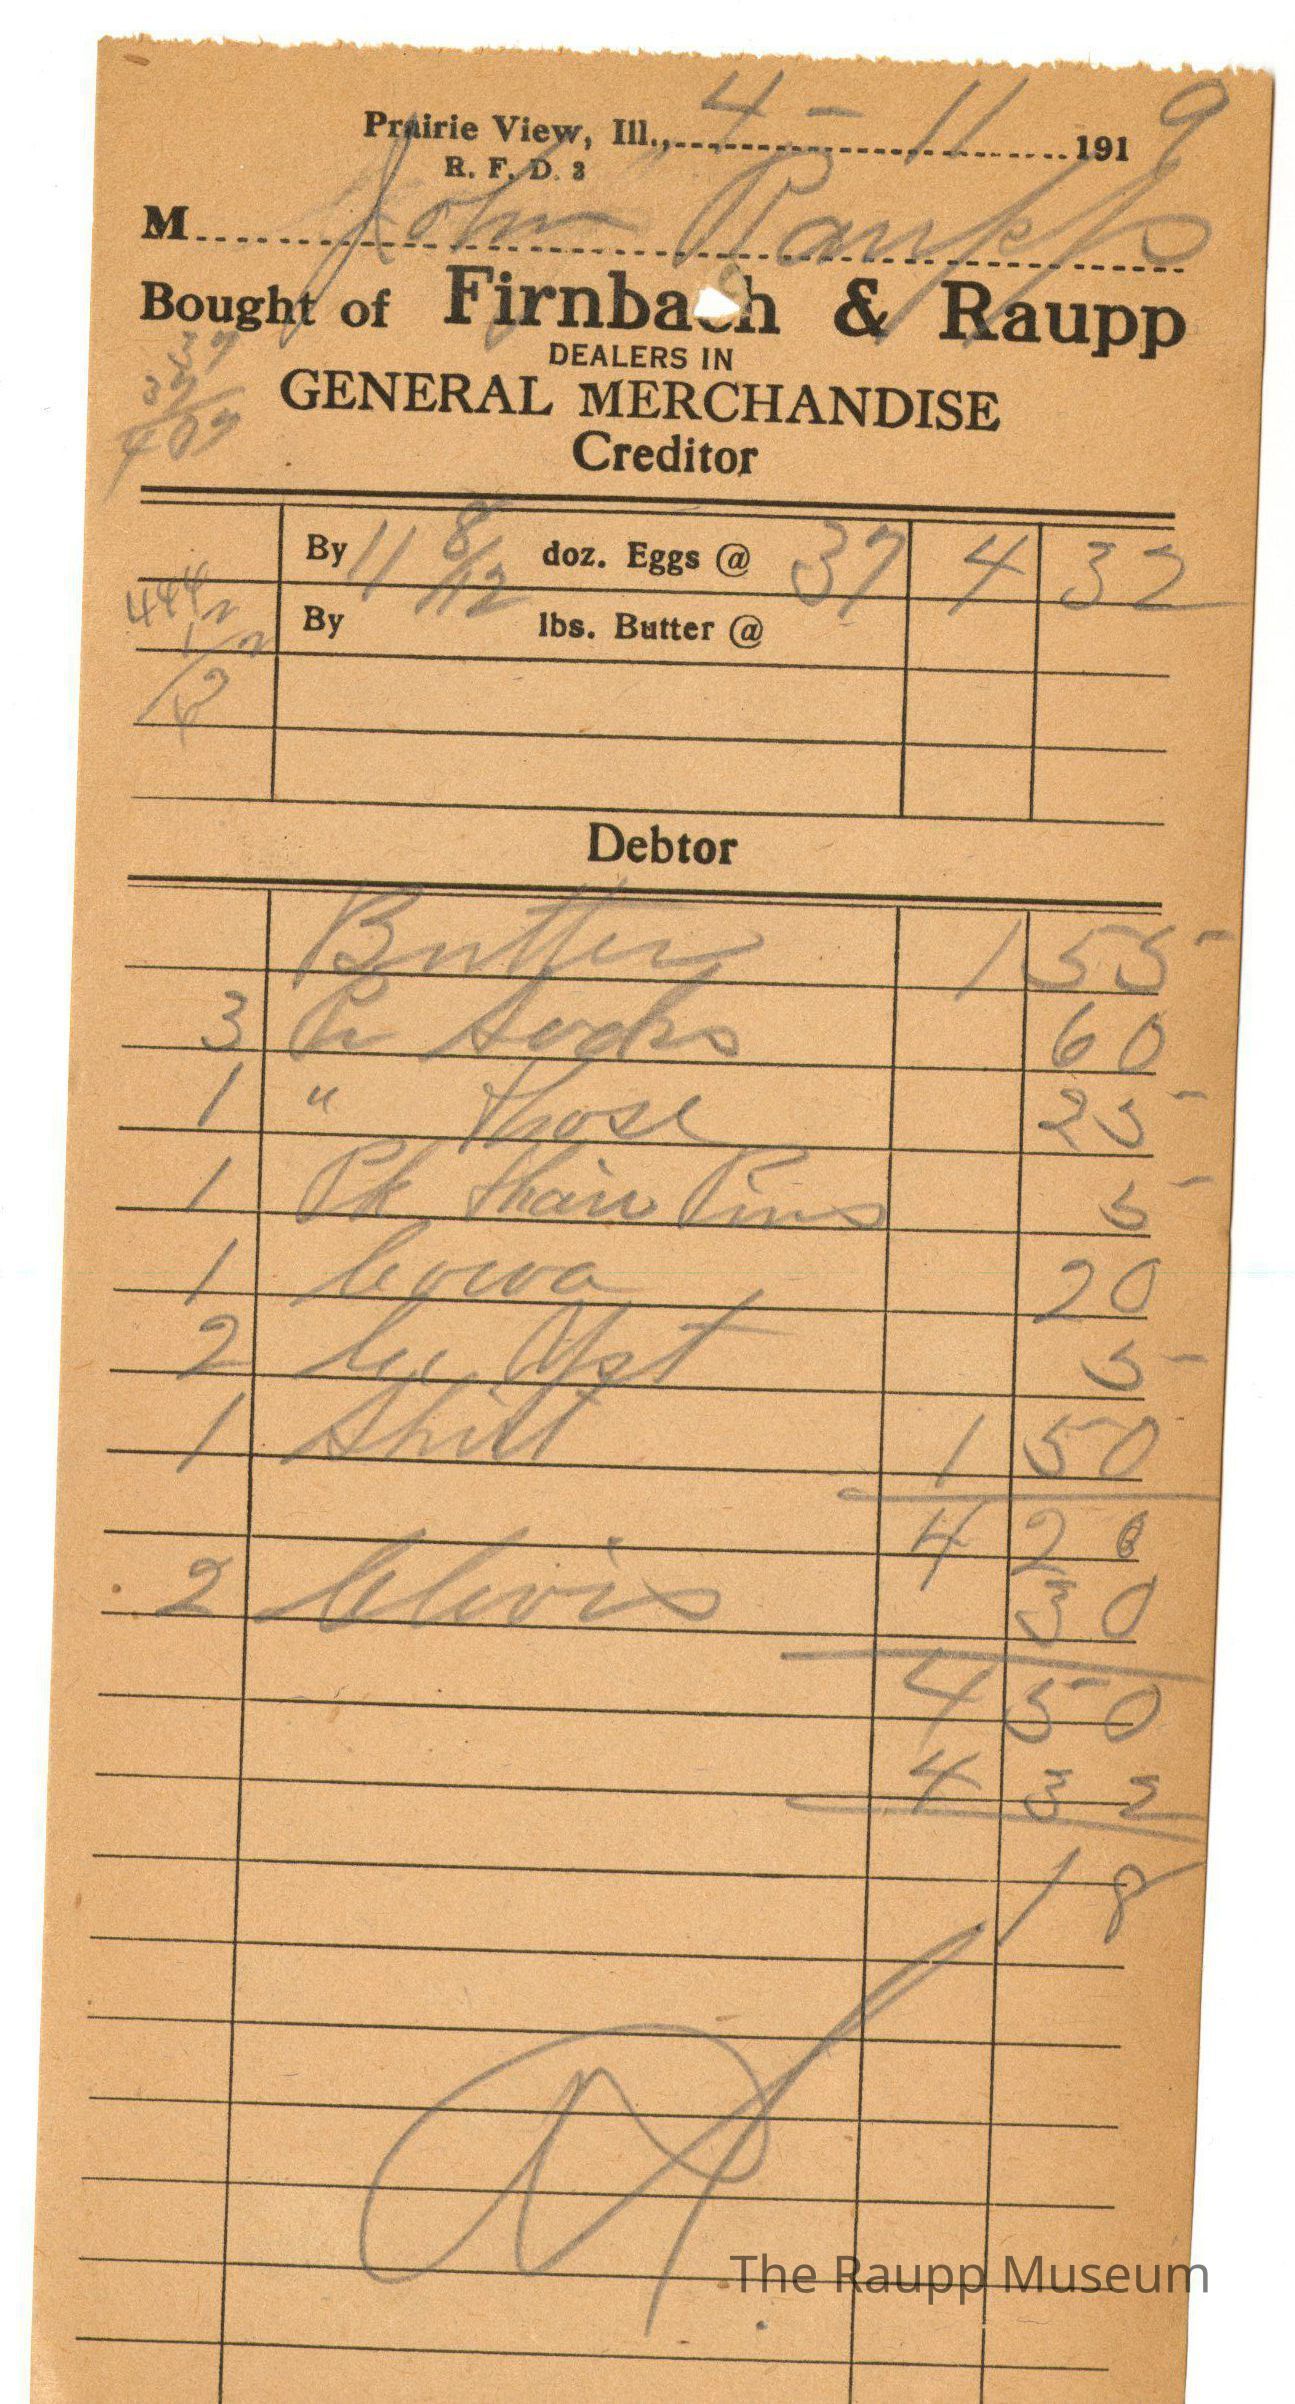 Prairie View, Ill., 4 - 11 1919
R. F. D. 3
M John Raupp
Bought of Firnbach & Raupp
DEALERS IN
GENERAL MERCHANDISE
Creditor
By 11 8/12 doz. Eggs @ 37 4 32
By lbs. Butter @
Debtor
Butter 1 55
3 Pr Socks 60
1 " Hose 25
1 Pk Hair Pins 5
1 Cocoa 20
2 Yst 5
1 Shirt 1 50
4 20
2 Clevis 30
4 50
4 32
18
The Raupp Museum